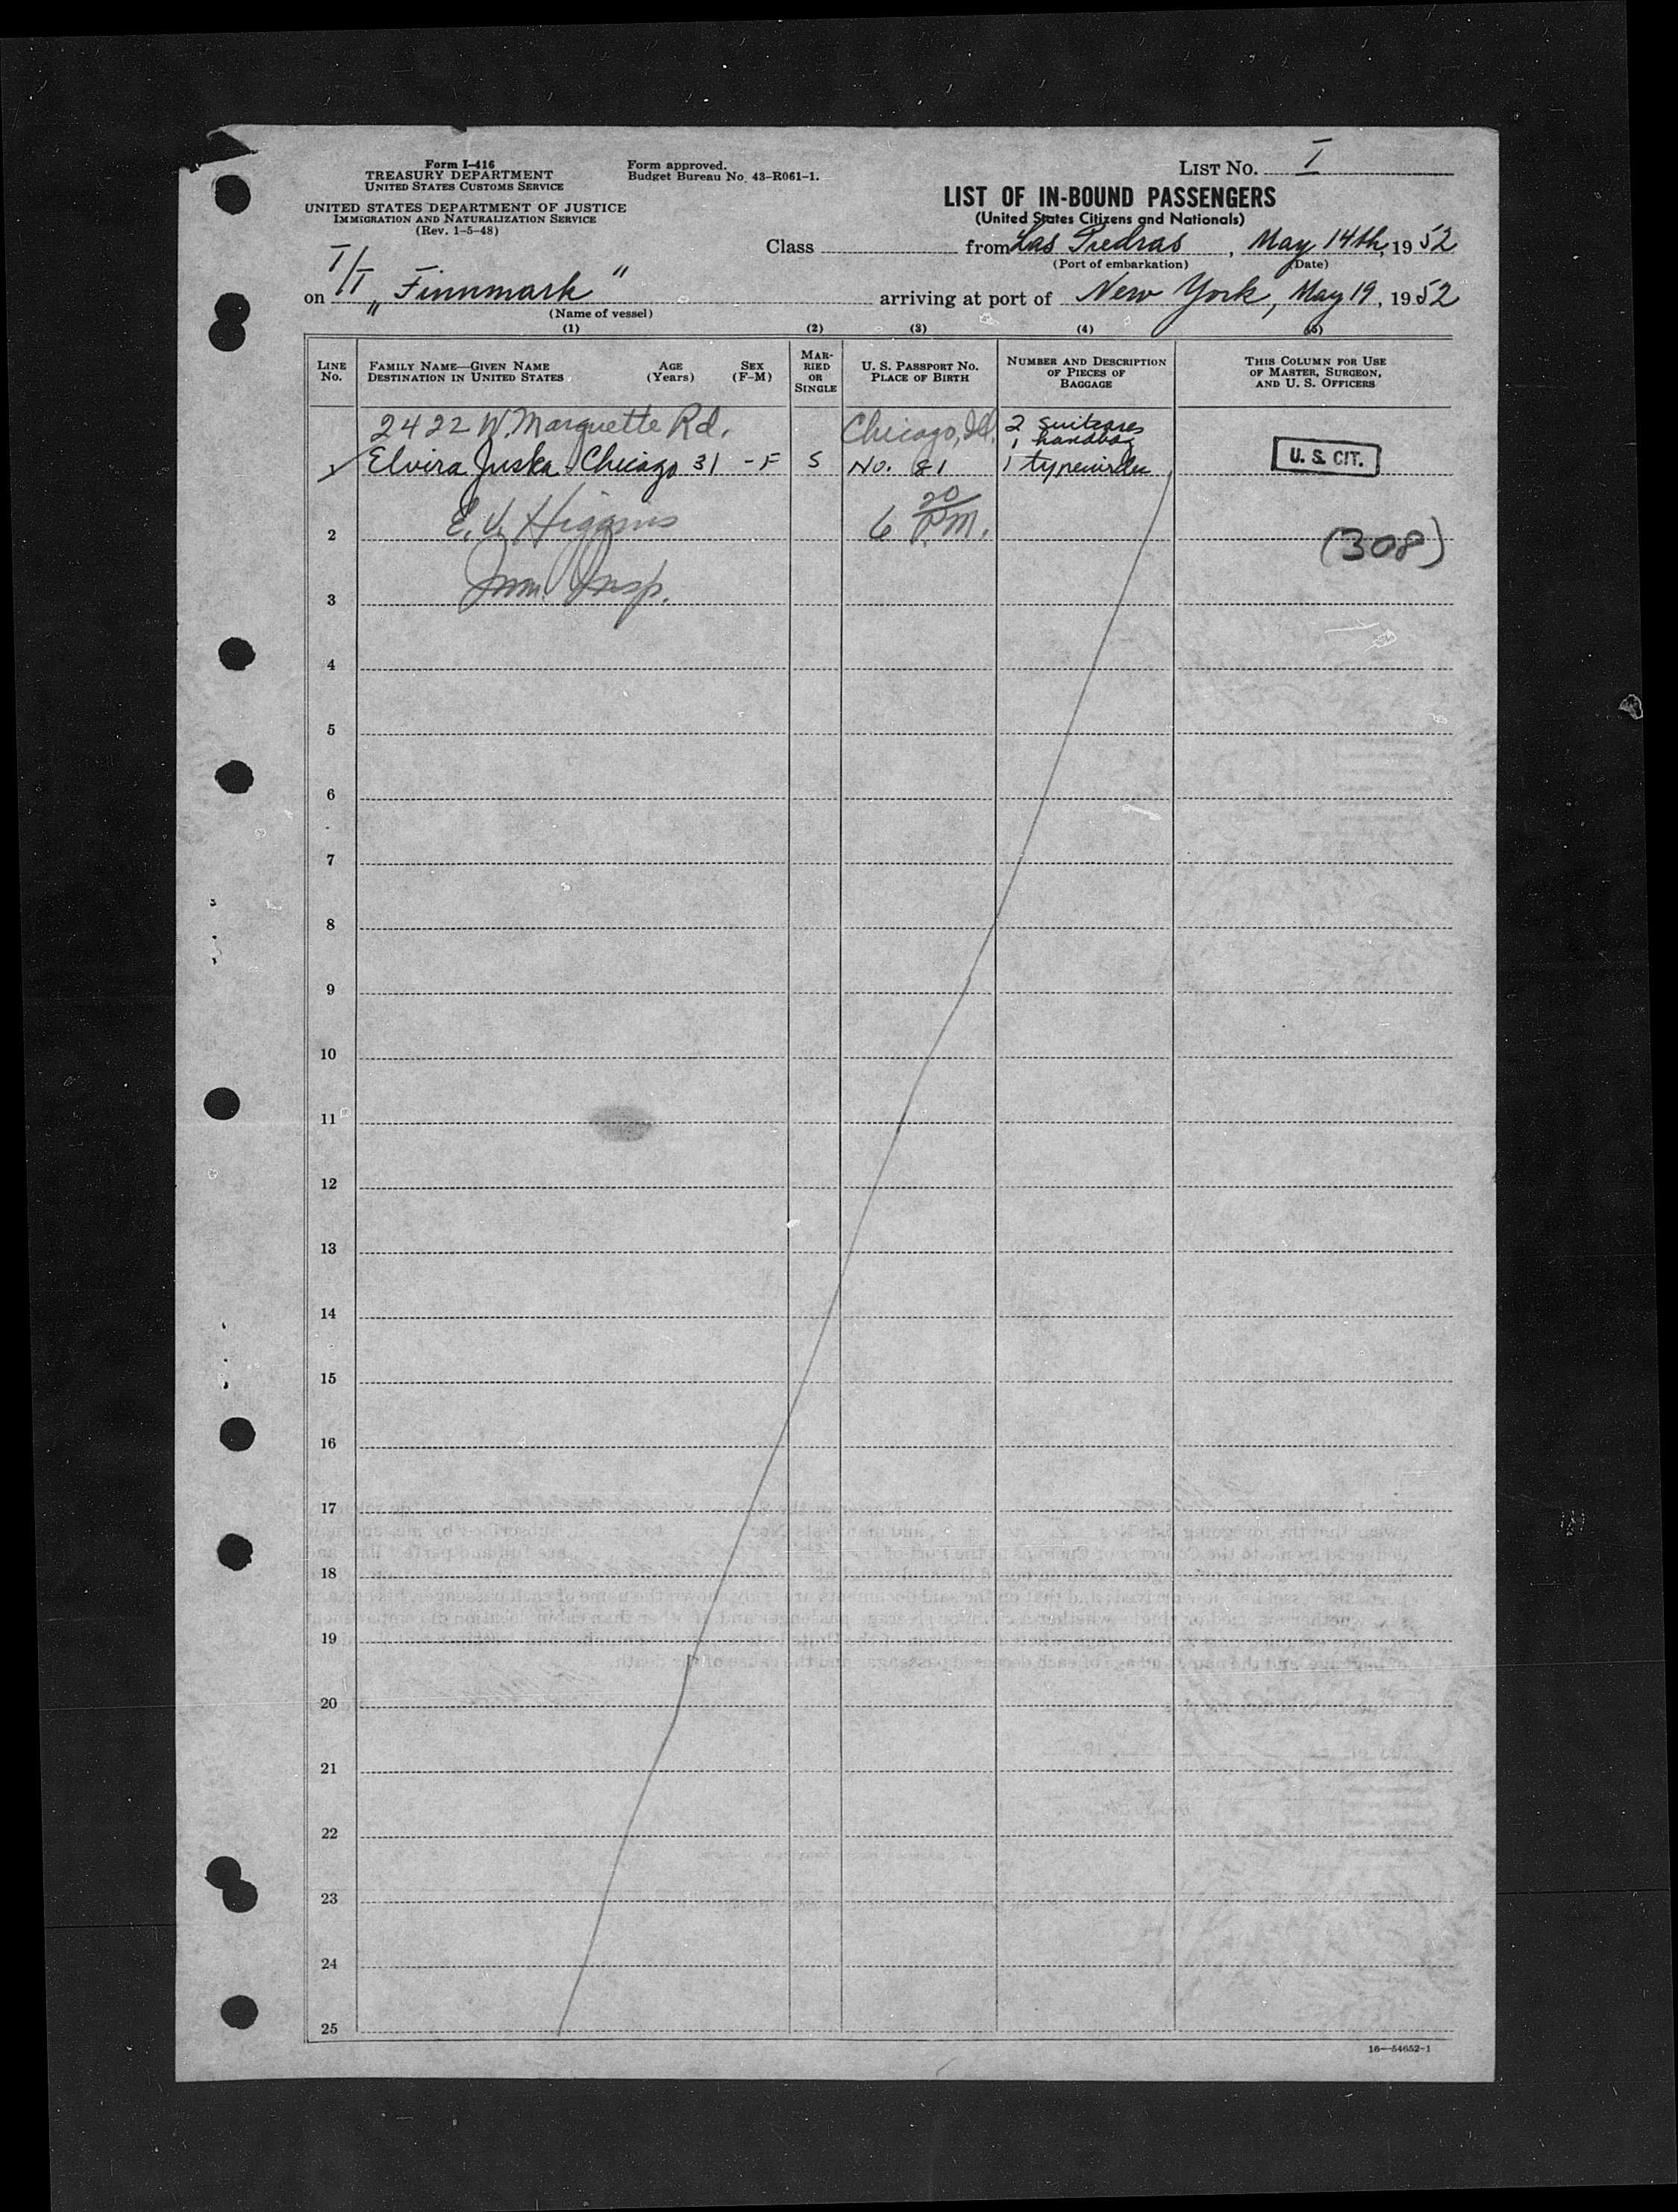 Form I-416
TREASURY DEPARTMENT
UNITED STATES CUSTOMS SERVICE
UNITED STATES DEPARTMENT OF JUSTICE
IMMIGRATION AND NATURALIZATION SERVICE
(Rev. 1-5-48)
Form approved.
Budget Bureau No. 43-R061-1.
LIST NO. I
LIST OF IN-BOUND PASSENGERS
(United States Citizens and Nationals)
Class from Las Piedras, May 14th, 1952
(Port of embarkation) (Date)
on T/T "Finnmark" arriving at port of New York, May 19, 1952
(Name of vessel)
(1) (2) (3) (4) (5)
LINE NO.
FAMILY NAME—GIVEN NAME AGE SEX
DESTINATION IN UNITED STATES (Years) (F-M)
MARRIED OR SINGLE
U. S. PASSPORT NO.
PLACE OF BIRTH
NUMBER AND DESCRIPTION
OF PIECES OF
BAGGAGE
THIS COLUMN FOR USE
OF MASTER, SURGEON,
AND U. S. OFFICERS
2422 W. Marquette Rd. Chicago, Ill. 2 suitcases
1 handbag
Elvira Juska Chicago 31 - F S No. 81 1 typewriter U. S. CIT.
E. V. Higgins 6 20 P.M.
2 (308)
Imm. Insp.
3
4
5
6
7
8
9
10
11
12
13
14
15
16
17
18
19
20
21
22
23
24
25
16—54652-1